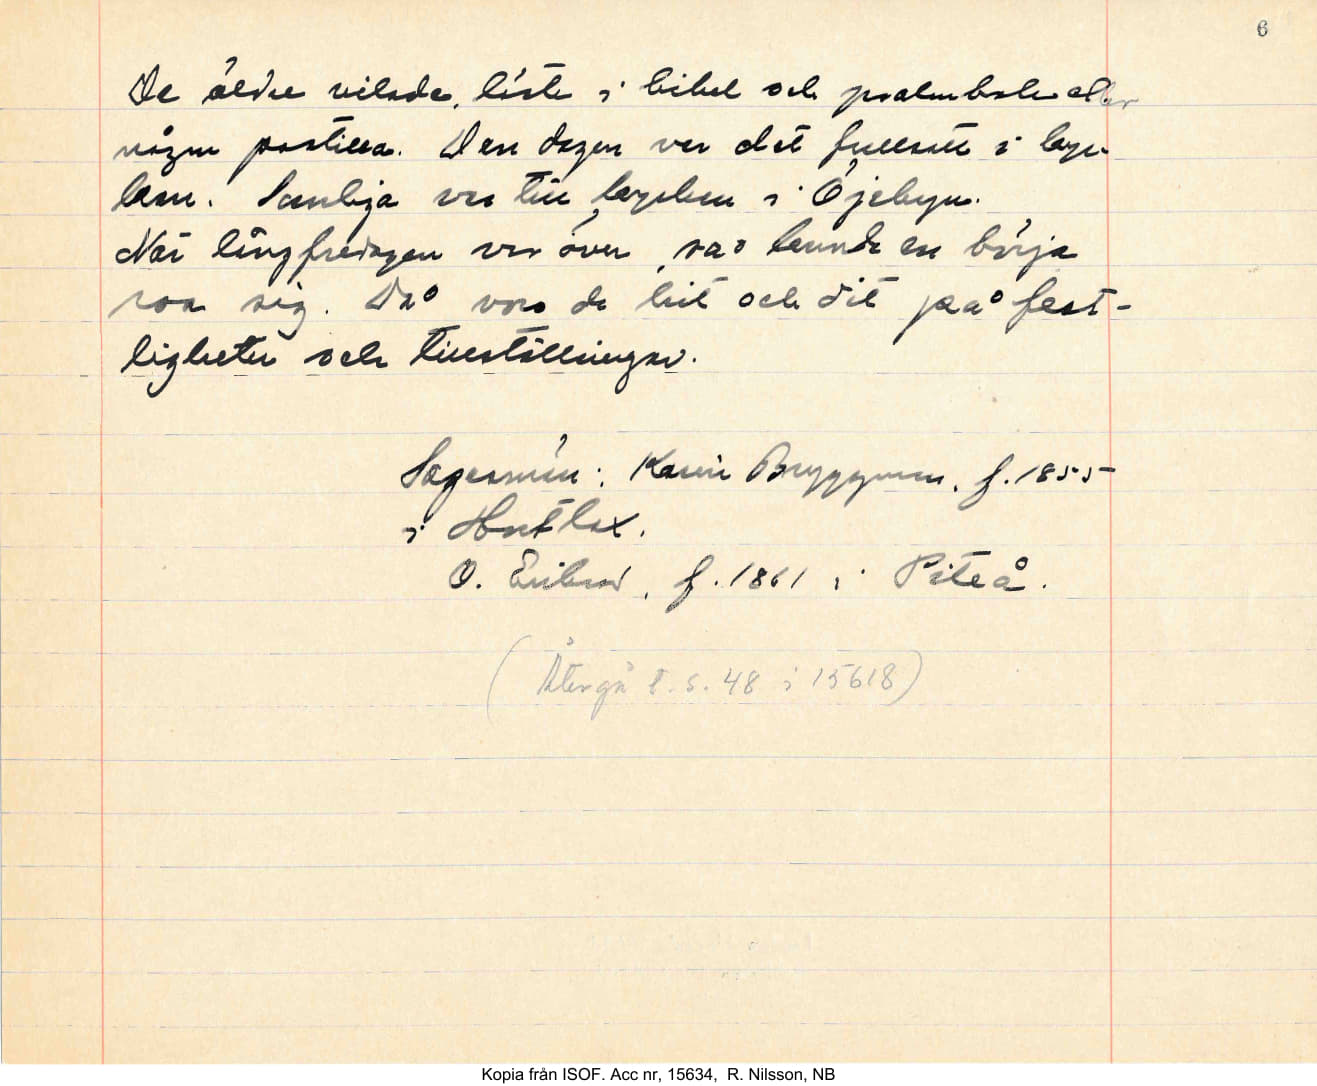 6
De äldre vilade, läste i bibel och psalmbok eller
någon postilla. Den dagen var det fullsatt i kyr-
kan. Samliga var till kyrkan i Öjebyn.
När långfredagen var över, så kunde en börja
roa sig. Då voro de hit och dit på fest-
ligheter och tillställningar.
Sagesmän: Karin Bryggman, f. 1855
i Hortlax.
O. Erikson, f. 1861 i Piteå.
(Återgå t. s. 48 i 15618)
Kopia från ISOF. Acc nr, 15634, R. Nilsson, NB